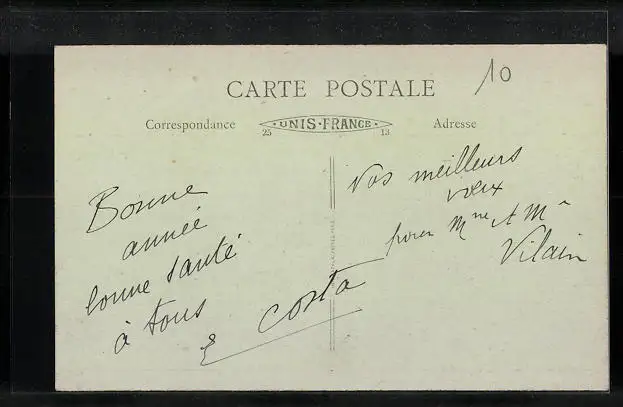 CARTE POSTALE
10
Correspondance
25 · UNIS-FRANCE · 13
Adresse
Bonne
année
bonne santé
à tous
E Costa
Vos meilleurs
vœux
pour Mme et Mr
Vilain